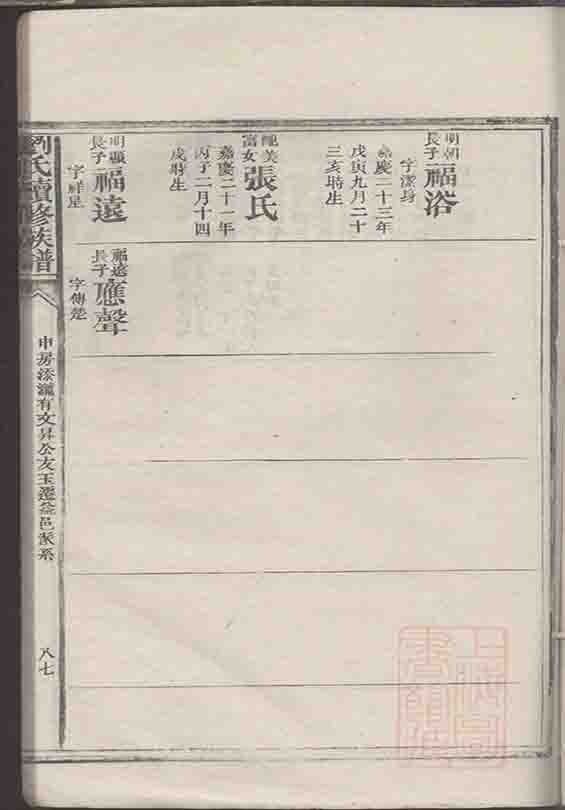 明朝
長子
福浴
字潔身
嘉慶二十三年
戊寅九月二十
三亥時生
女張氏
嘉慶二十一年
丙子二月十四
戌時生
明顯
長子
福遠
字祥星
福遠
長子
應聲
字傳楚
劉氏續修族譜
申房溹瀧有文昇公友玉遷益邑派系
八七
上海圖書館藏